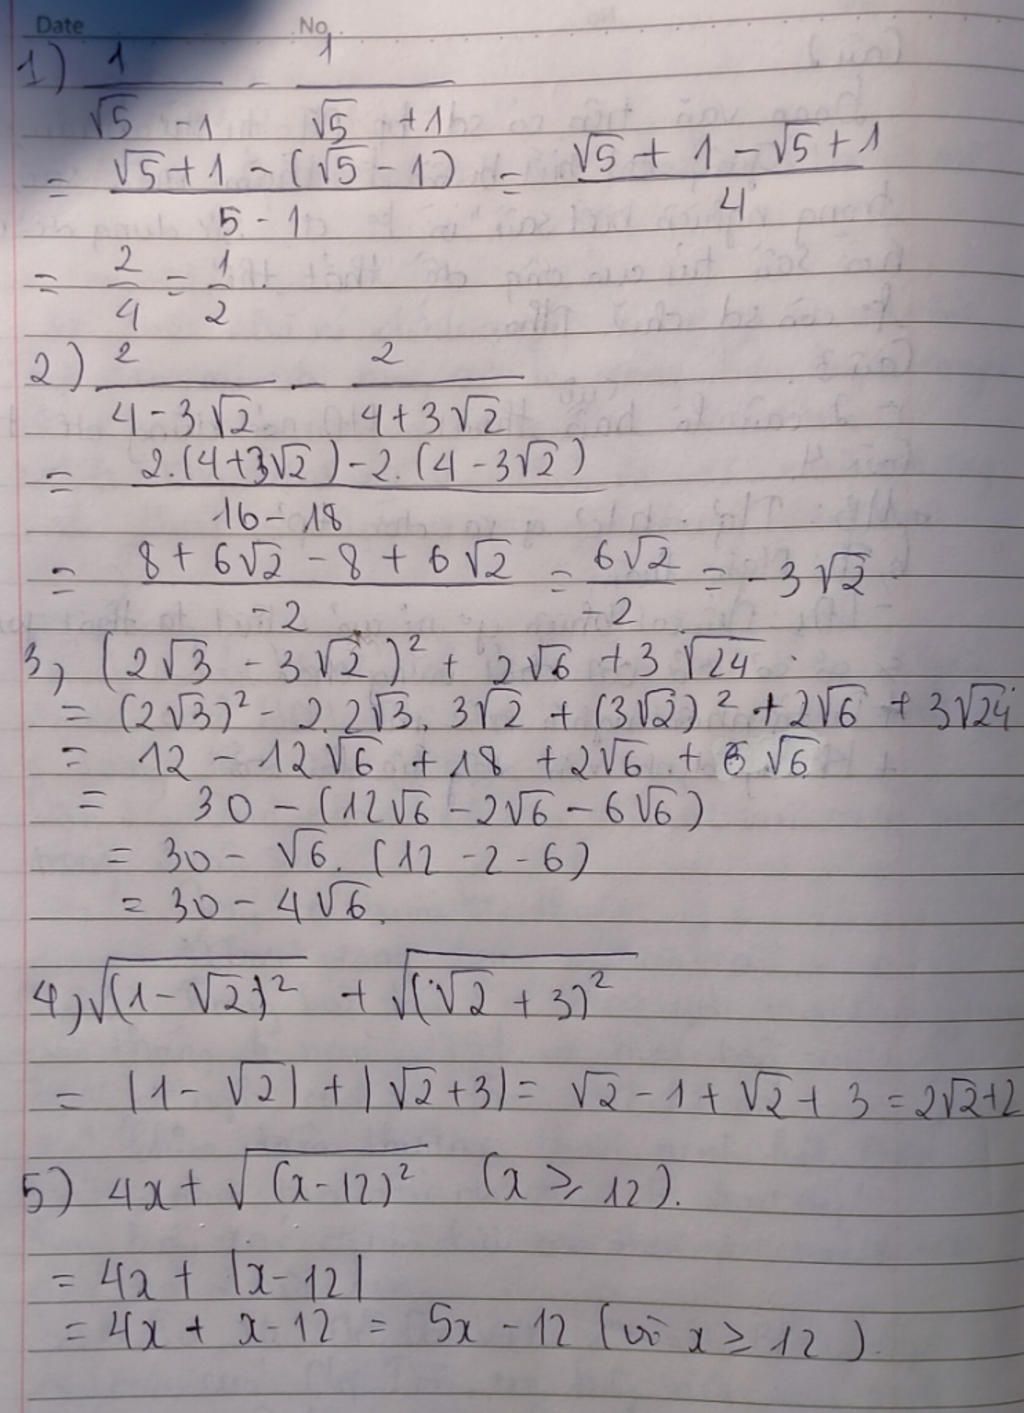 Date No.
1) 1/(√5 - 1) - 1/(√5 + 1)
= (√5 + 1 - (√5 - 1))/(5 - 1) = (√5 + 1 - √5 + 1)/4
= 2/4 = 1/2
2) 2/(4 - 3√2) - 2/(4 + 3√2)
= (2.(4 + 3√2) - 2.(4 - 3√2))/(16 - 18)
= (8 + 6√2 - 8 + 6√2)/(-2) = 6√2/(-2) = -3√2
3, (2√3 - 3√2)² + 2√6 + 3√24
= (2√3)² - 2.2√3.3√2 + (3√2)² + 2√6 + 3√24
= 12 - 12√6 + 18 + 2√6 + 6√6
= 30 - (12√6 - 2√6 - 6√6)
= 30 - √6.(12 - 2 - 6)
= 30 - 4√6.
4, √(1 - √2)² + √(√2 + 3)²
= |1 - √2| + |√2 + 3| = √2 - 1 + √2 + 3 = 2√2 + 2
5) 4x + √(x - 12)² (x ≥ 12).
= 4x + |x - 12|
= 4x + x - 12 = 5x - 12 (vì x ≥ 12).